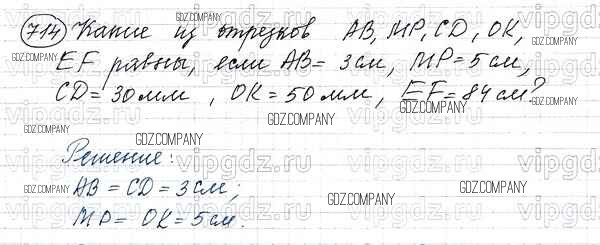 714 Какие из отрезков AB, MP, CD, OK,
EF равны, если AB = 3см, MP = 5см,
CD = 30мм, OK = 50мм, EF = 84см?
Решение:
AB = CD = 3см;
MP = OK = 5см.
GDZ.COMPANY
vipgdz.ru